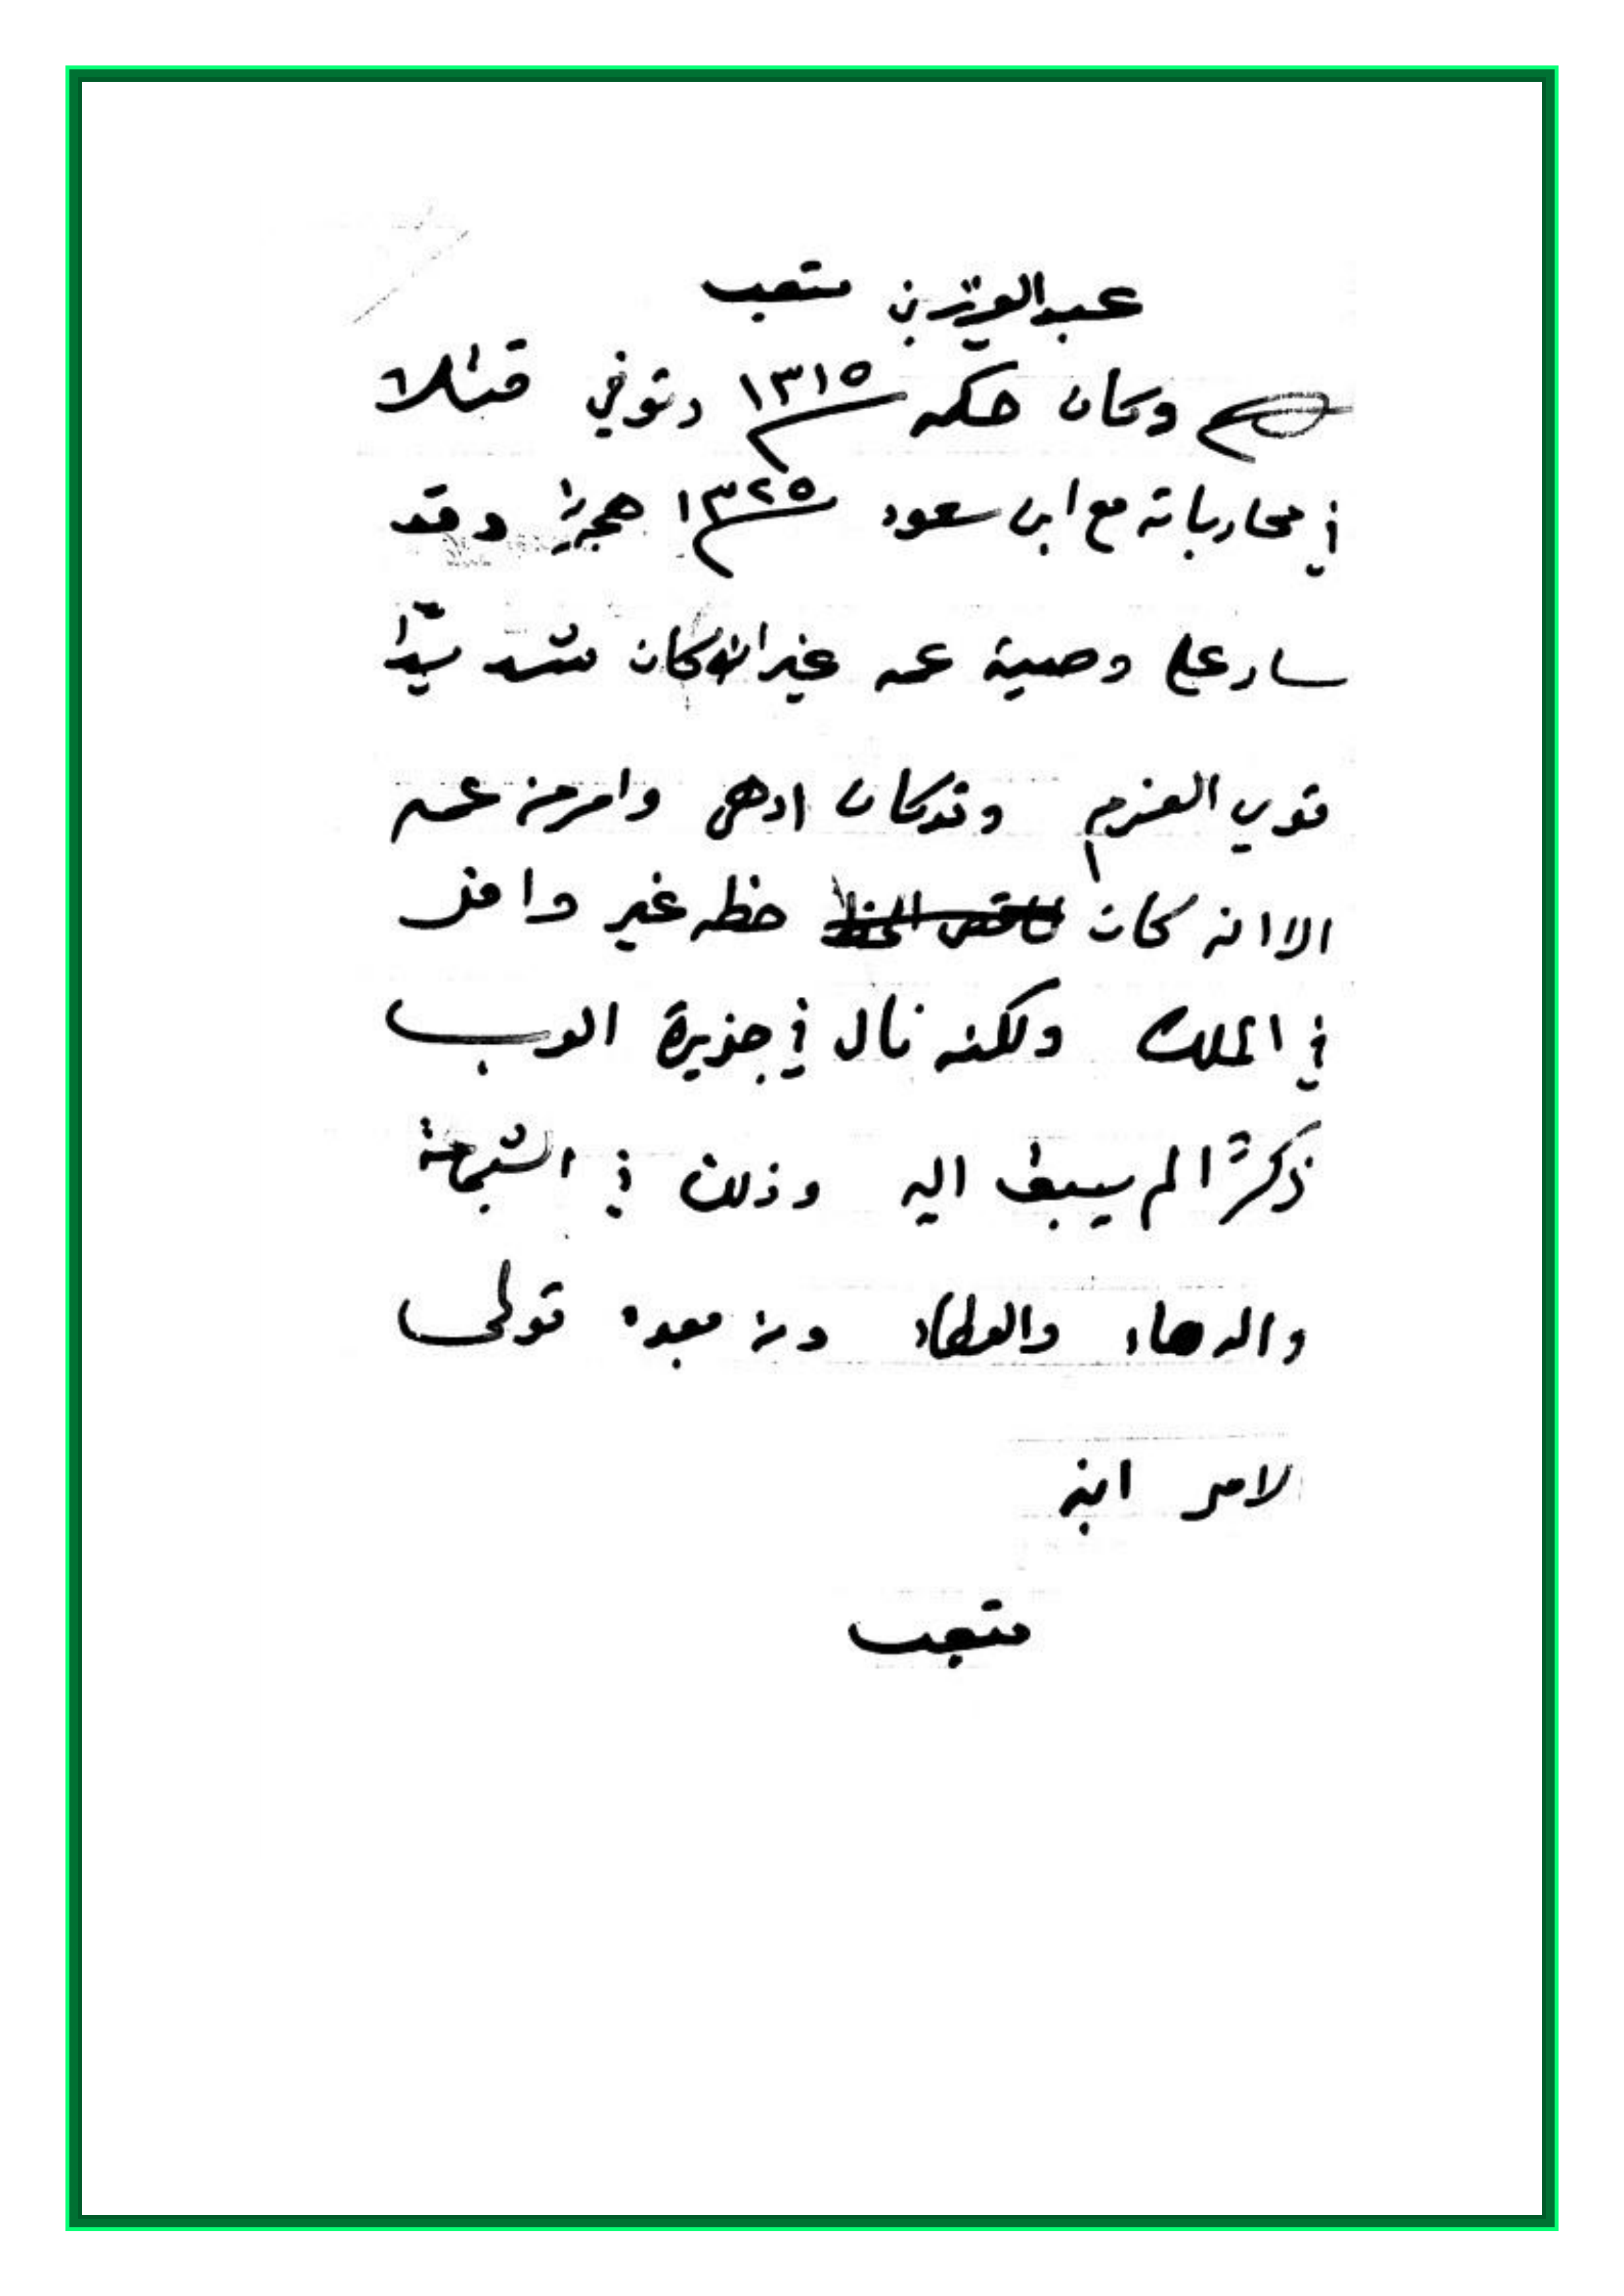 عبدالعزيز بن متعب
وكان حكمه ١٣١٥ وتوفي قتيلا
في محارباته مع ابن سعود ١٣٢٥ هجريا وقد
سار على وصية عمه غير انه كان
قوي العزم وقد كان ادهى وامر من عمه
الا انه كان ناقص الحظ حظه غير وافر
في الملك ولكنه نال في جزيرة العرب
ذكرًا لم يسبق اليه وذلك في الشجاعة
والدهاء والعطاء ومن بعده تولى
لامر ابنه
متعب